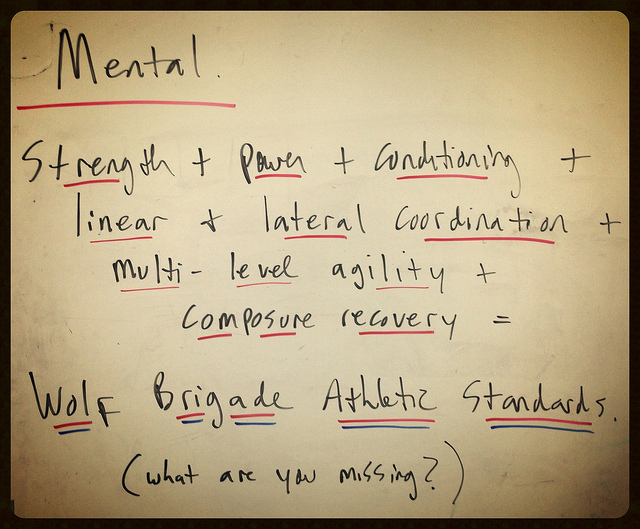 Mental.
Strength + power + conditioning +
linear + lateral coordination +
multi-level agility +
composure recovery =
Wolf Brigade Athletic Standards.
(what are you missing?)